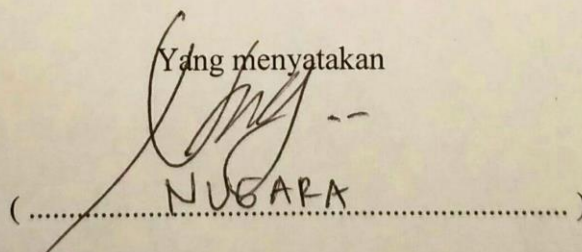 Yang menyatakan
( NUGARA )